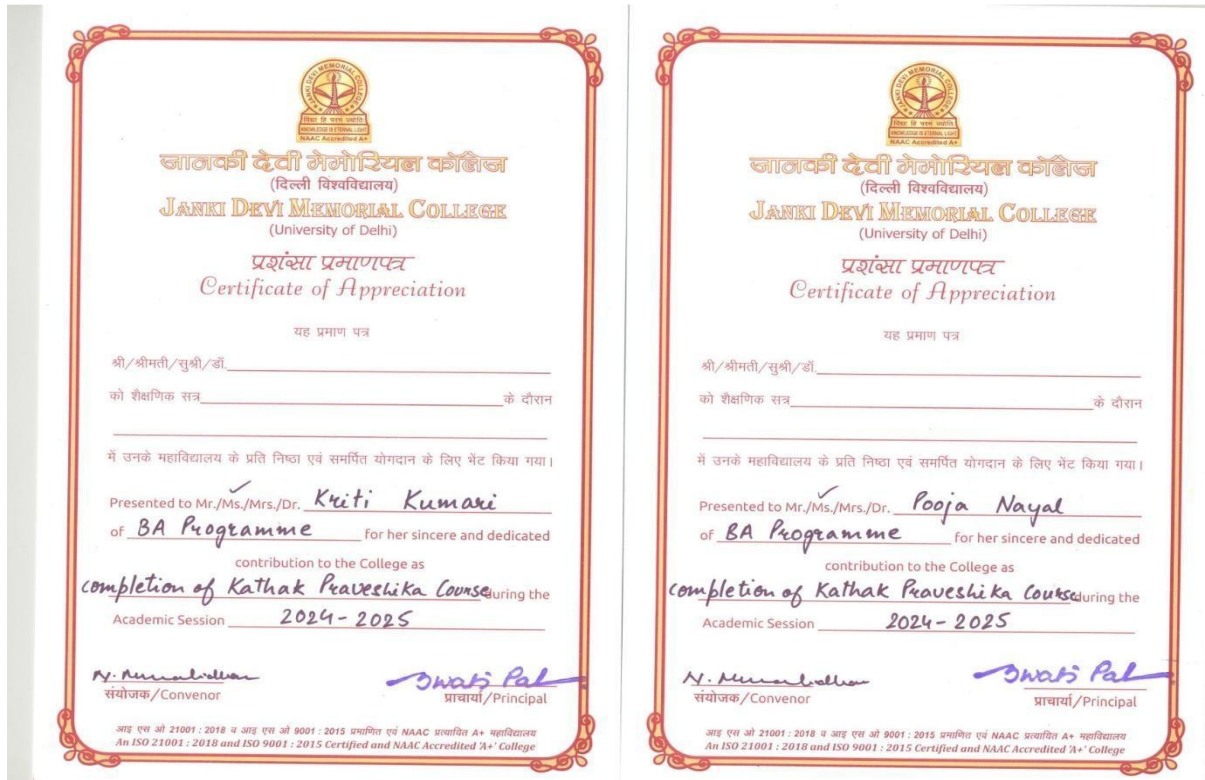 JANKI DEVI MEMORIAL COLLEGE
विद्या हि परमं ज्योतिः
KNOWLEDGE IS ETERNAL LIGHT
NAAC Accredited A+
जानकी देवी मेमोरियल कॉलेज
(दिल्ली विश्वविद्यालय)
JANKI DEVI MEMORIAL COLLEGE
(University of Delhi)
प्रशंसा प्रमाणपत्र
Certificate of Appreciation
यह प्रमाण पत्र
श्री/श्रीमती/सुश्री/डॉ.
को शैक्षणिक सत्र के दौरान
में उनके महाविद्यालय के प्रति निष्ठा एवं समर्पित योगदान के लिए भेंट किया गया।
Presented to Mr./Ms./Mrs./Dr. Kriti Kumari
of BA Programme for her sincere and dedicated
contribution to the College as
completion of Kathak Praveshika Course during the
Academic Session 2024-2025
संयोजक/Convenor
Swati Pal
प्राचार्या/Principal
आइ एस ओ 21001 : 2018 व आइ एस ओ 9001 : 2015 प्रमाणित एवं NAAC प्रत्यायित A+ महाविद्यालय
An ISO 21001 : 2018 and ISO 9001 : 2015 Certified and NAAC Accredited 'A+' College
JANKI DEVI MEMORIAL COLLEGE
विद्या हि परमं ज्योतिः
KNOWLEDGE IS ETERNAL LIGHT
NAAC Accredited A+
जानकी देवी मेमोरियल कॉलेज
(दिल्ली विश्वविद्यालय)
JANKI DEVI MEMORIAL COLLEGE
(University of Delhi)
प्रशंसा प्रमाणपत्र
Certificate of Appreciation
यह प्रमाण पत्र
श्री/श्रीमती/सुश्री/डॉ.
को शैक्षणिक सत्र के दौरान
में उनके महाविद्यालय के प्रति निष्ठा एवं समर्पित योगदान के लिए भेंट किया गया।
Presented to Mr./Ms./Mrs./Dr. Pooja Nayal
of BA Programme for her sincere and dedicated
contribution to the College as
completion of Kathak Praveshika Course during the
Academic Session 2024-2025
संयोजक/Convenor
Swati Pal
प्राचार्या/Principal
आइ एस ओ 21001 : 2018 व आइ एस ओ 9001 : 2015 प्रमाणित एवं NAAC प्रत्यायित A+ महाविद्यालय
An ISO 21001 : 2018 and ISO 9001 : 2015 Certified and NAAC Accredited 'A+' College